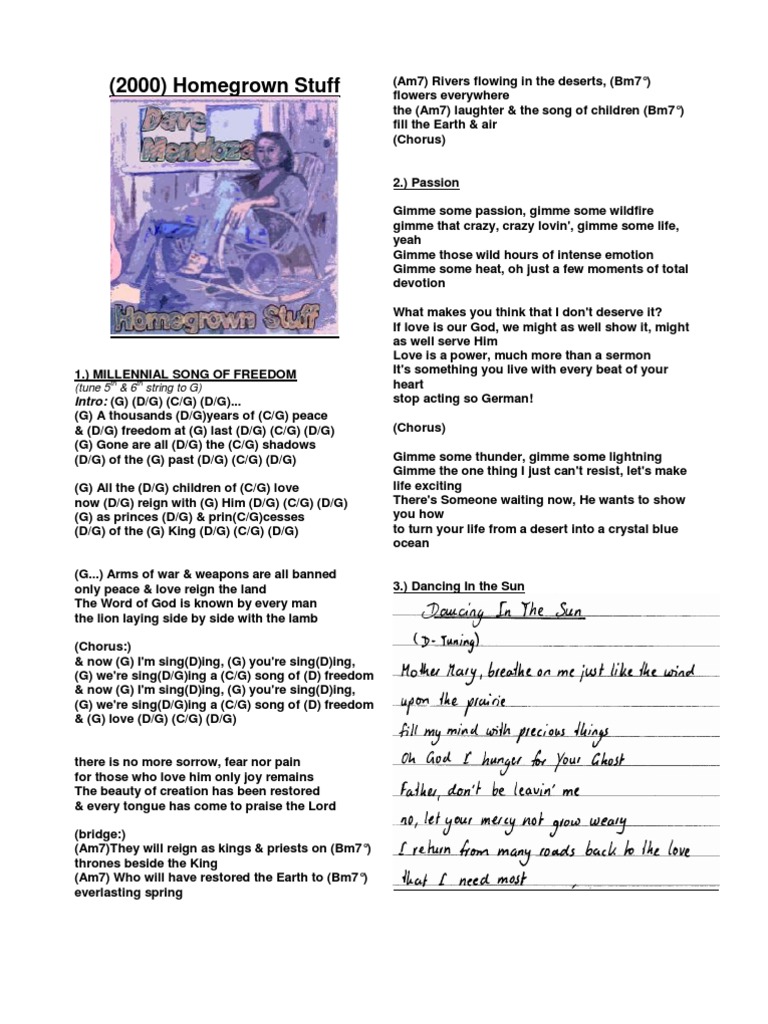 (2000) Homegrown Stuff
Dave
Mendoza
Homegrown Stuff
1.) MILLENNIAL SONG OF FREEDOM
(tune 5th & 6th string to G)
Intro: (G) (D/G) (C/G) (D/G)...
(G) A thousands (D/G)years of (C/G) peace
& (D/G) freedom at (G) last (D/G) (C/G) (D/G)
(G) Gone are all (D/G) the (C/G) shadows
(D/G) of the (G) past (D/G) (C/G) (D/G)
(G) All the (D/G) children of (C/G) love
now (D/G) reign with (G) Him (D/G) (C/G) (D/G)
(G) as princes (D/G) & prin(C/G)cesses
(D/G) of the (G) King (D/G) (C/G) (D/G)
(G...) Arms of war & weapons are all banned
only peace & love reign the land
The Word of God is known by every man
the lion laying side by side with the lamb
(Chorus:)
& now (G) I'm sing(D)ing, (G) you're sing(D)ing,
(G) we're sing(D/G)ing a (C/G) song of (D) freedom
& now (G) I'm sing(D)ing, (G) you're sing(D)ing,
(G) we're sing(D/G)ing a (C/G) song of (D) freedom
& (G) love (D/G) (C/G) (D/G)
there is no more sorrow, fear nor pain
for those who love him only joy remains
The beauty of creation has been restored
& every tongue has come to praise the Lord
(bridge:)
(Am7)They will reign as kings & priests on (Bm7°)
thrones beside the King
(Am7) Who will have restored the Earth to (Bm7°)
everlasting spring
(Am7) Rivers flowing in the deserts, (Bm7°)
flowers everywhere
the (Am7) laughter & the song of children (Bm7°)
fill the Earth & air
(Chorus)
2.) Passion
Gimme some passion, gimme some wildfire
gimme that crazy, crazy lovin', gimme some life,
yeah
Gimme those wild hours of intense emotion
Gimme some heat, oh just a few moments of total
devotion
What makes you think that I don't deserve it?
If love is our God, we might as well show it, might
as well serve Him
Love is a power, much more than a sermon
It's something you live with every beat of your
heart
stop acting so German!
(Chorus)
Gimme some thunder, gimme some lightning
Gimme the one thing I just can't resist, let's make
life exciting
There's Someone waiting now, He wants to show
you how
to turn your life from a desert into a crystal blue
ocean
3.) Dancing In the Sun
Dancing In The Sun
(D-Tuning)
Mother Mary, breathe on me just like the wind
upon the prairie
fill my mind with precious things
Oh God I hunger for Your Ghost
Father, don't be leavin' me
no, let your mercy not grow weary
I return from many roads back to the love
that I need most